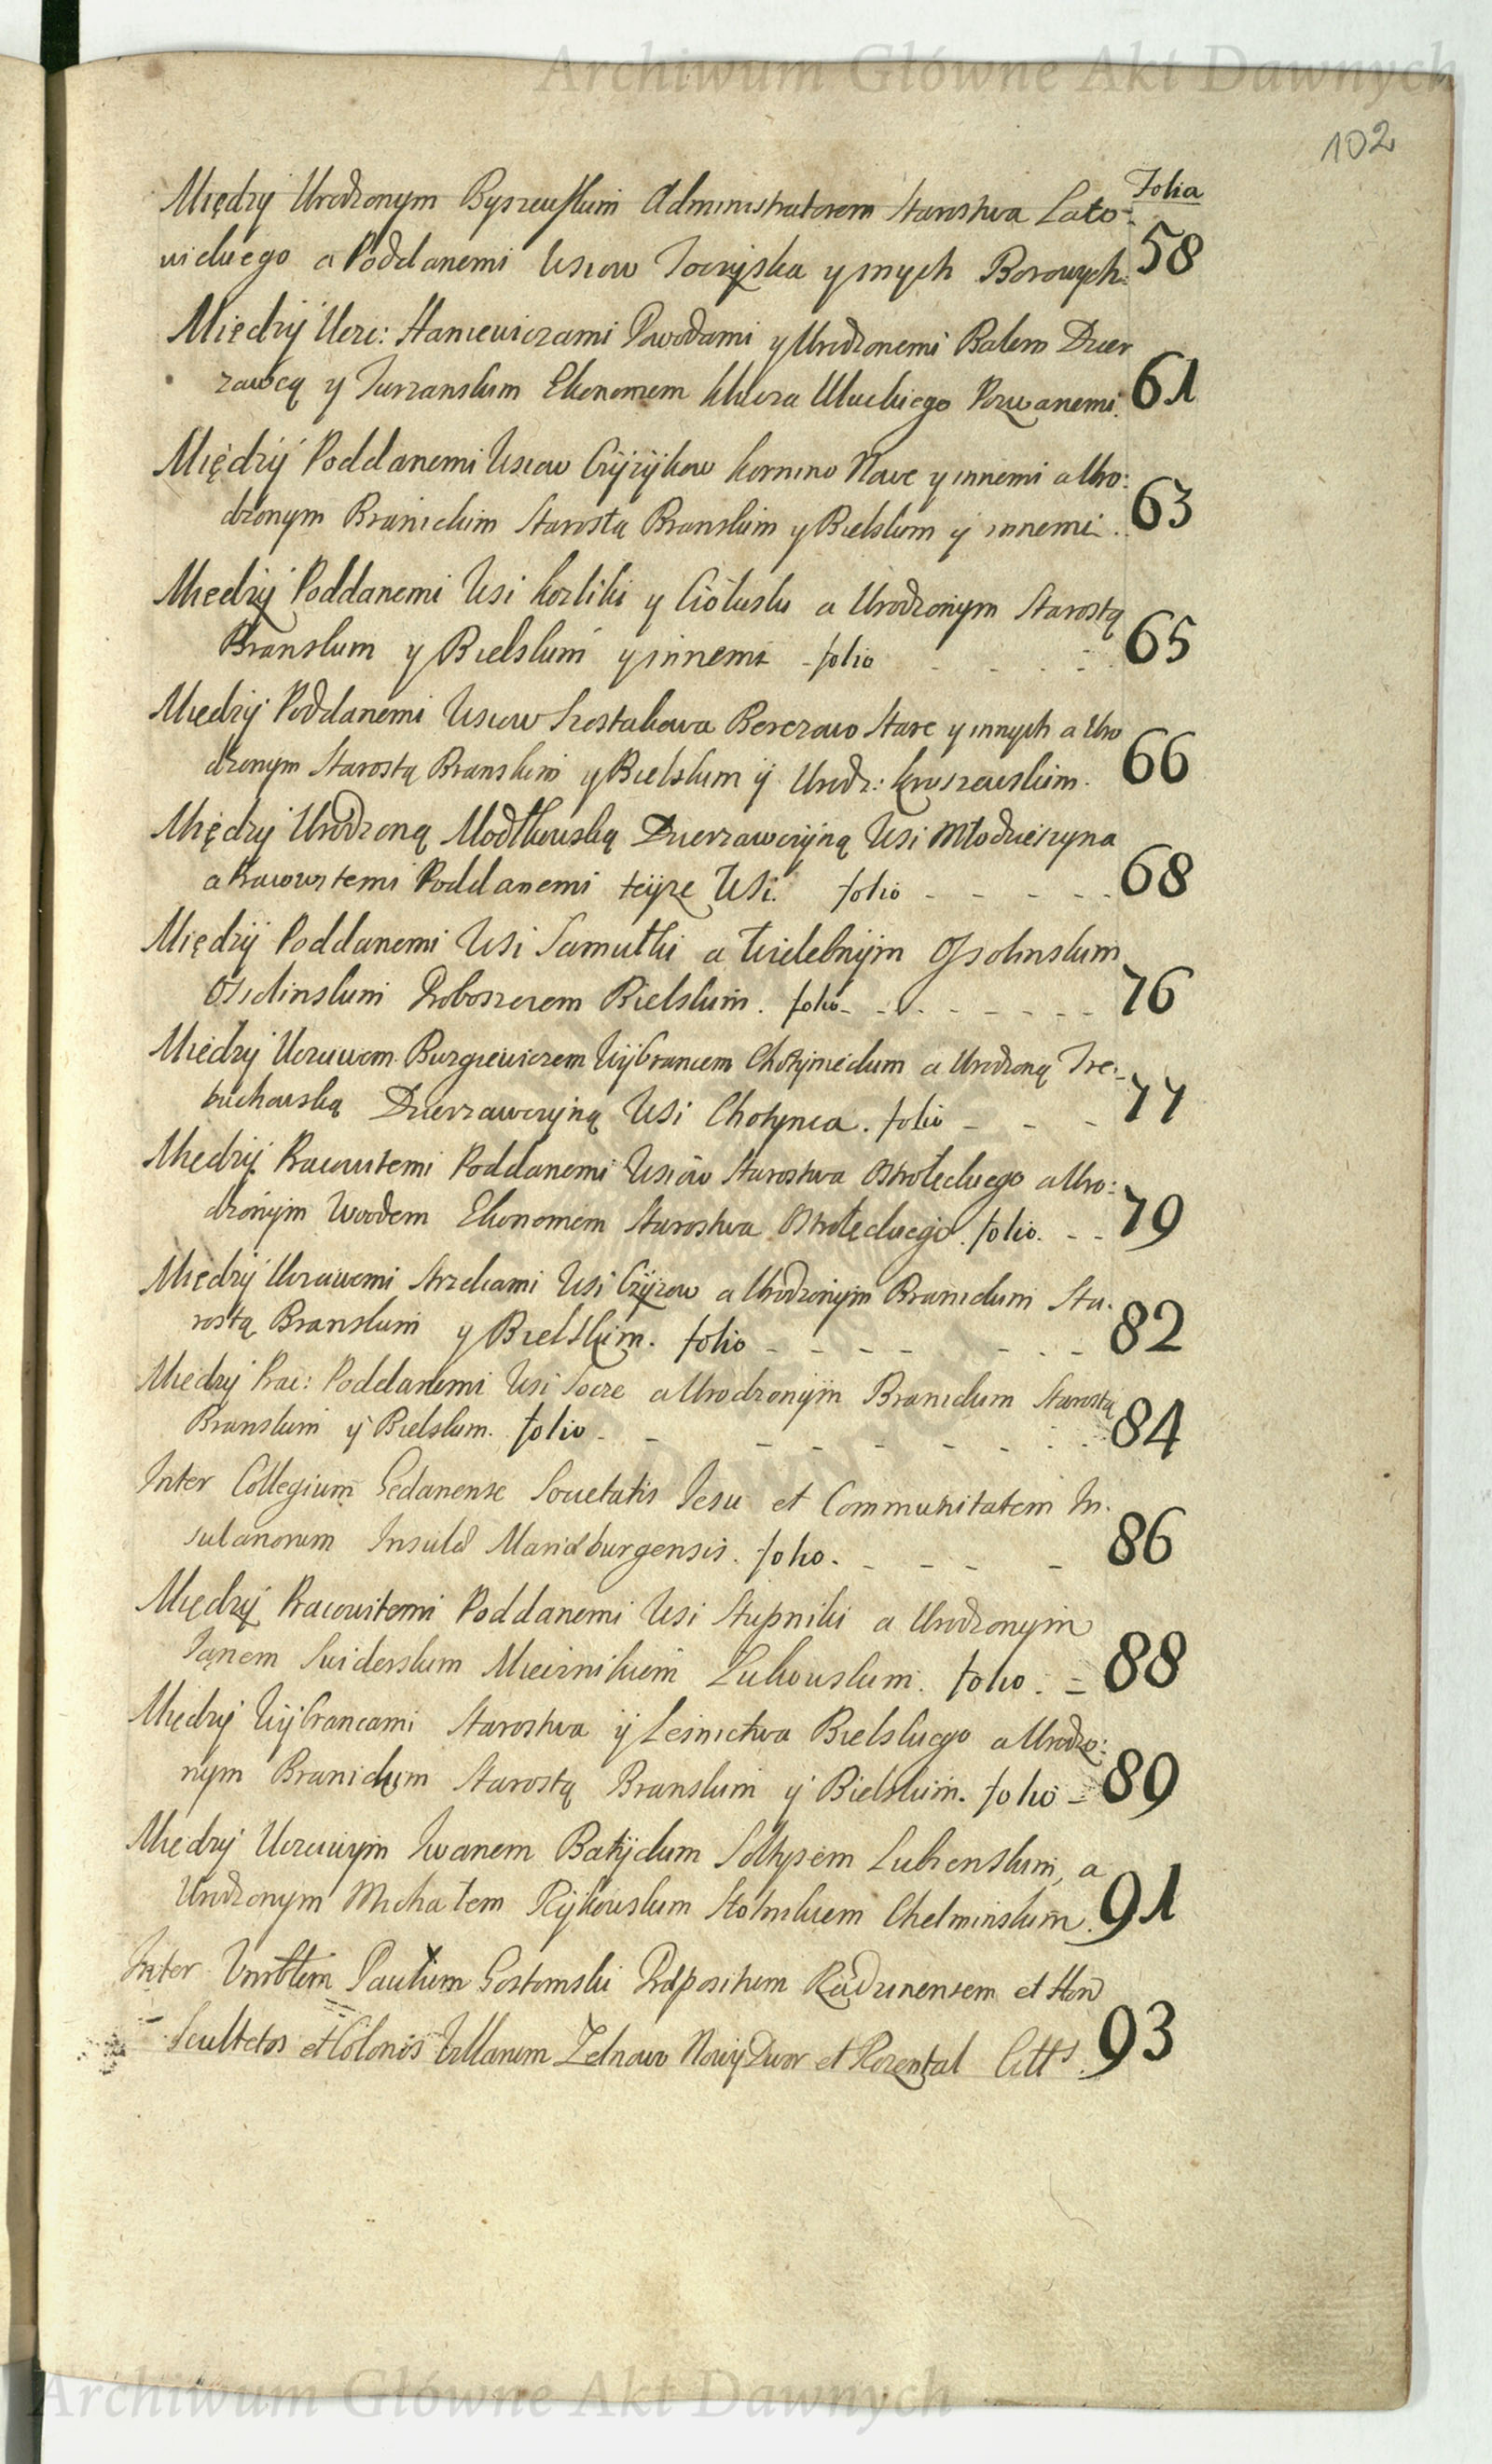 Archiwum Główne Akt Dawnych
102
Folia
Między Urodzonym Byszewskim Administratorem Starostwa Lato-
wickiego a Poddanemi Wsiow Ynnych Borowych. 58
Między Ucze: Staniewiczami Powodami y Urodzonemi Balem Dzier
zawcą y Turzanskim Ekonomem Klucza Pozwanemi. 61
Między Poddanemi Wsiow Czyżykow Kornino Nowe y innemi a Uro:
dzonym Branickim Starostą Branskim y Bielskim y innemi. 63
Między Poddanemi Wsi Kozliki y a Urodzonym Starostą
Branskim y Bielskim y innemi - folio 65
Między Poddanemi Wsiow Szostakowa Berezowo Stare y innych a Uro
dzonym Starostą Branskim y Bielskim y Urodz: Kruszewskim. 66
Między Urodzoną Modlkowską Dzierzawczyną Wsi Młodzieszyna
a Pracowitemi Poddanemi teyze Wsi. folio - - - - - 68
Między Poddanemi Wsi Samułki a Wielebnym Ossolinskim
Ossolinskim Proboszczem Bielskim. folio - - - - - - - 76
Między Uczciwem Burgiewiczem Wybrancem Chotynieckim a Urodzoną Tre:
buchowską Dzierzawczyną Wsi Chotynia. folio - - - 77
Między Pracowitemi Poddanemi Wsiów Starostwa Ostrołęckiego a Uro:
dzonym Woodem Ekonomem Starostwa Ostrołęckiego. folio. - - 79
Między Uczciwemi Strzelcami Wsi Czyzow a Urodzonym Branickim Sta.
rostą Branskim y Bielskim. folio - - - - - - - 82
Między Prac: Poddanemi Wsi Socze a Urodzonym Branickim Starostą
Branskim y Bielskim. folio - - - - - - - 84
Inter Collegium Gedanense Societatis Jesu et Communitatem In.
sulanorum Insulæ Mariæburgensis. folio. - - - - 86
Między Pracowitemi Poddanemi Wsi Stupniki a Urodzonym
Janem Swiderskim Miecznikiem Lukowskim. folio. = 88
Między Wybrancami Starostwa y Lesnictwa Bielskiego a Urodzo:
nym Branickim Starostą Branskim y Bielskim. folio - 89
Między Uczciwym Iwanem Batyckim Sołtysem Lubenskim, a
Urodzonym Michałem Ryikowskim Stolnikiem Chelminskim. 91
Inter Paulum Gostomski Præpositum Radzinensem et Hon
Scultetos et Colonos Villarum Zelnowo Nowy Dwor et Rozental 93
Archiwum Główne Akt Dawnych